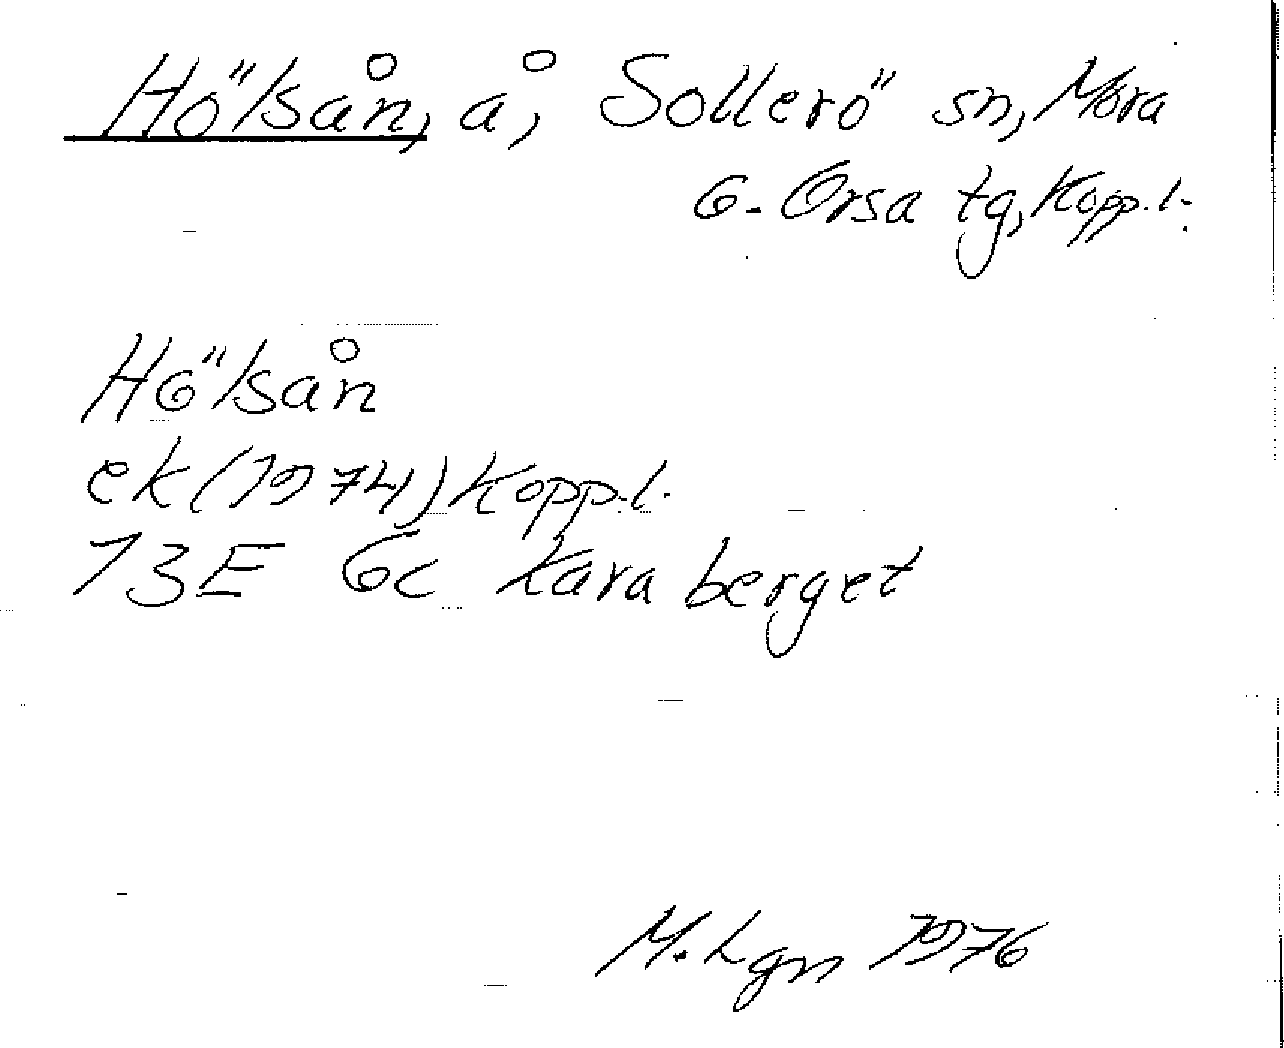 Hölsån, å, Sollerö sn, Mora
o. Orsa tg, Kopp. l.
Hölsån
ek (1974) Kopp. l.
13E 6c Karaberget
M. Lgn 1976